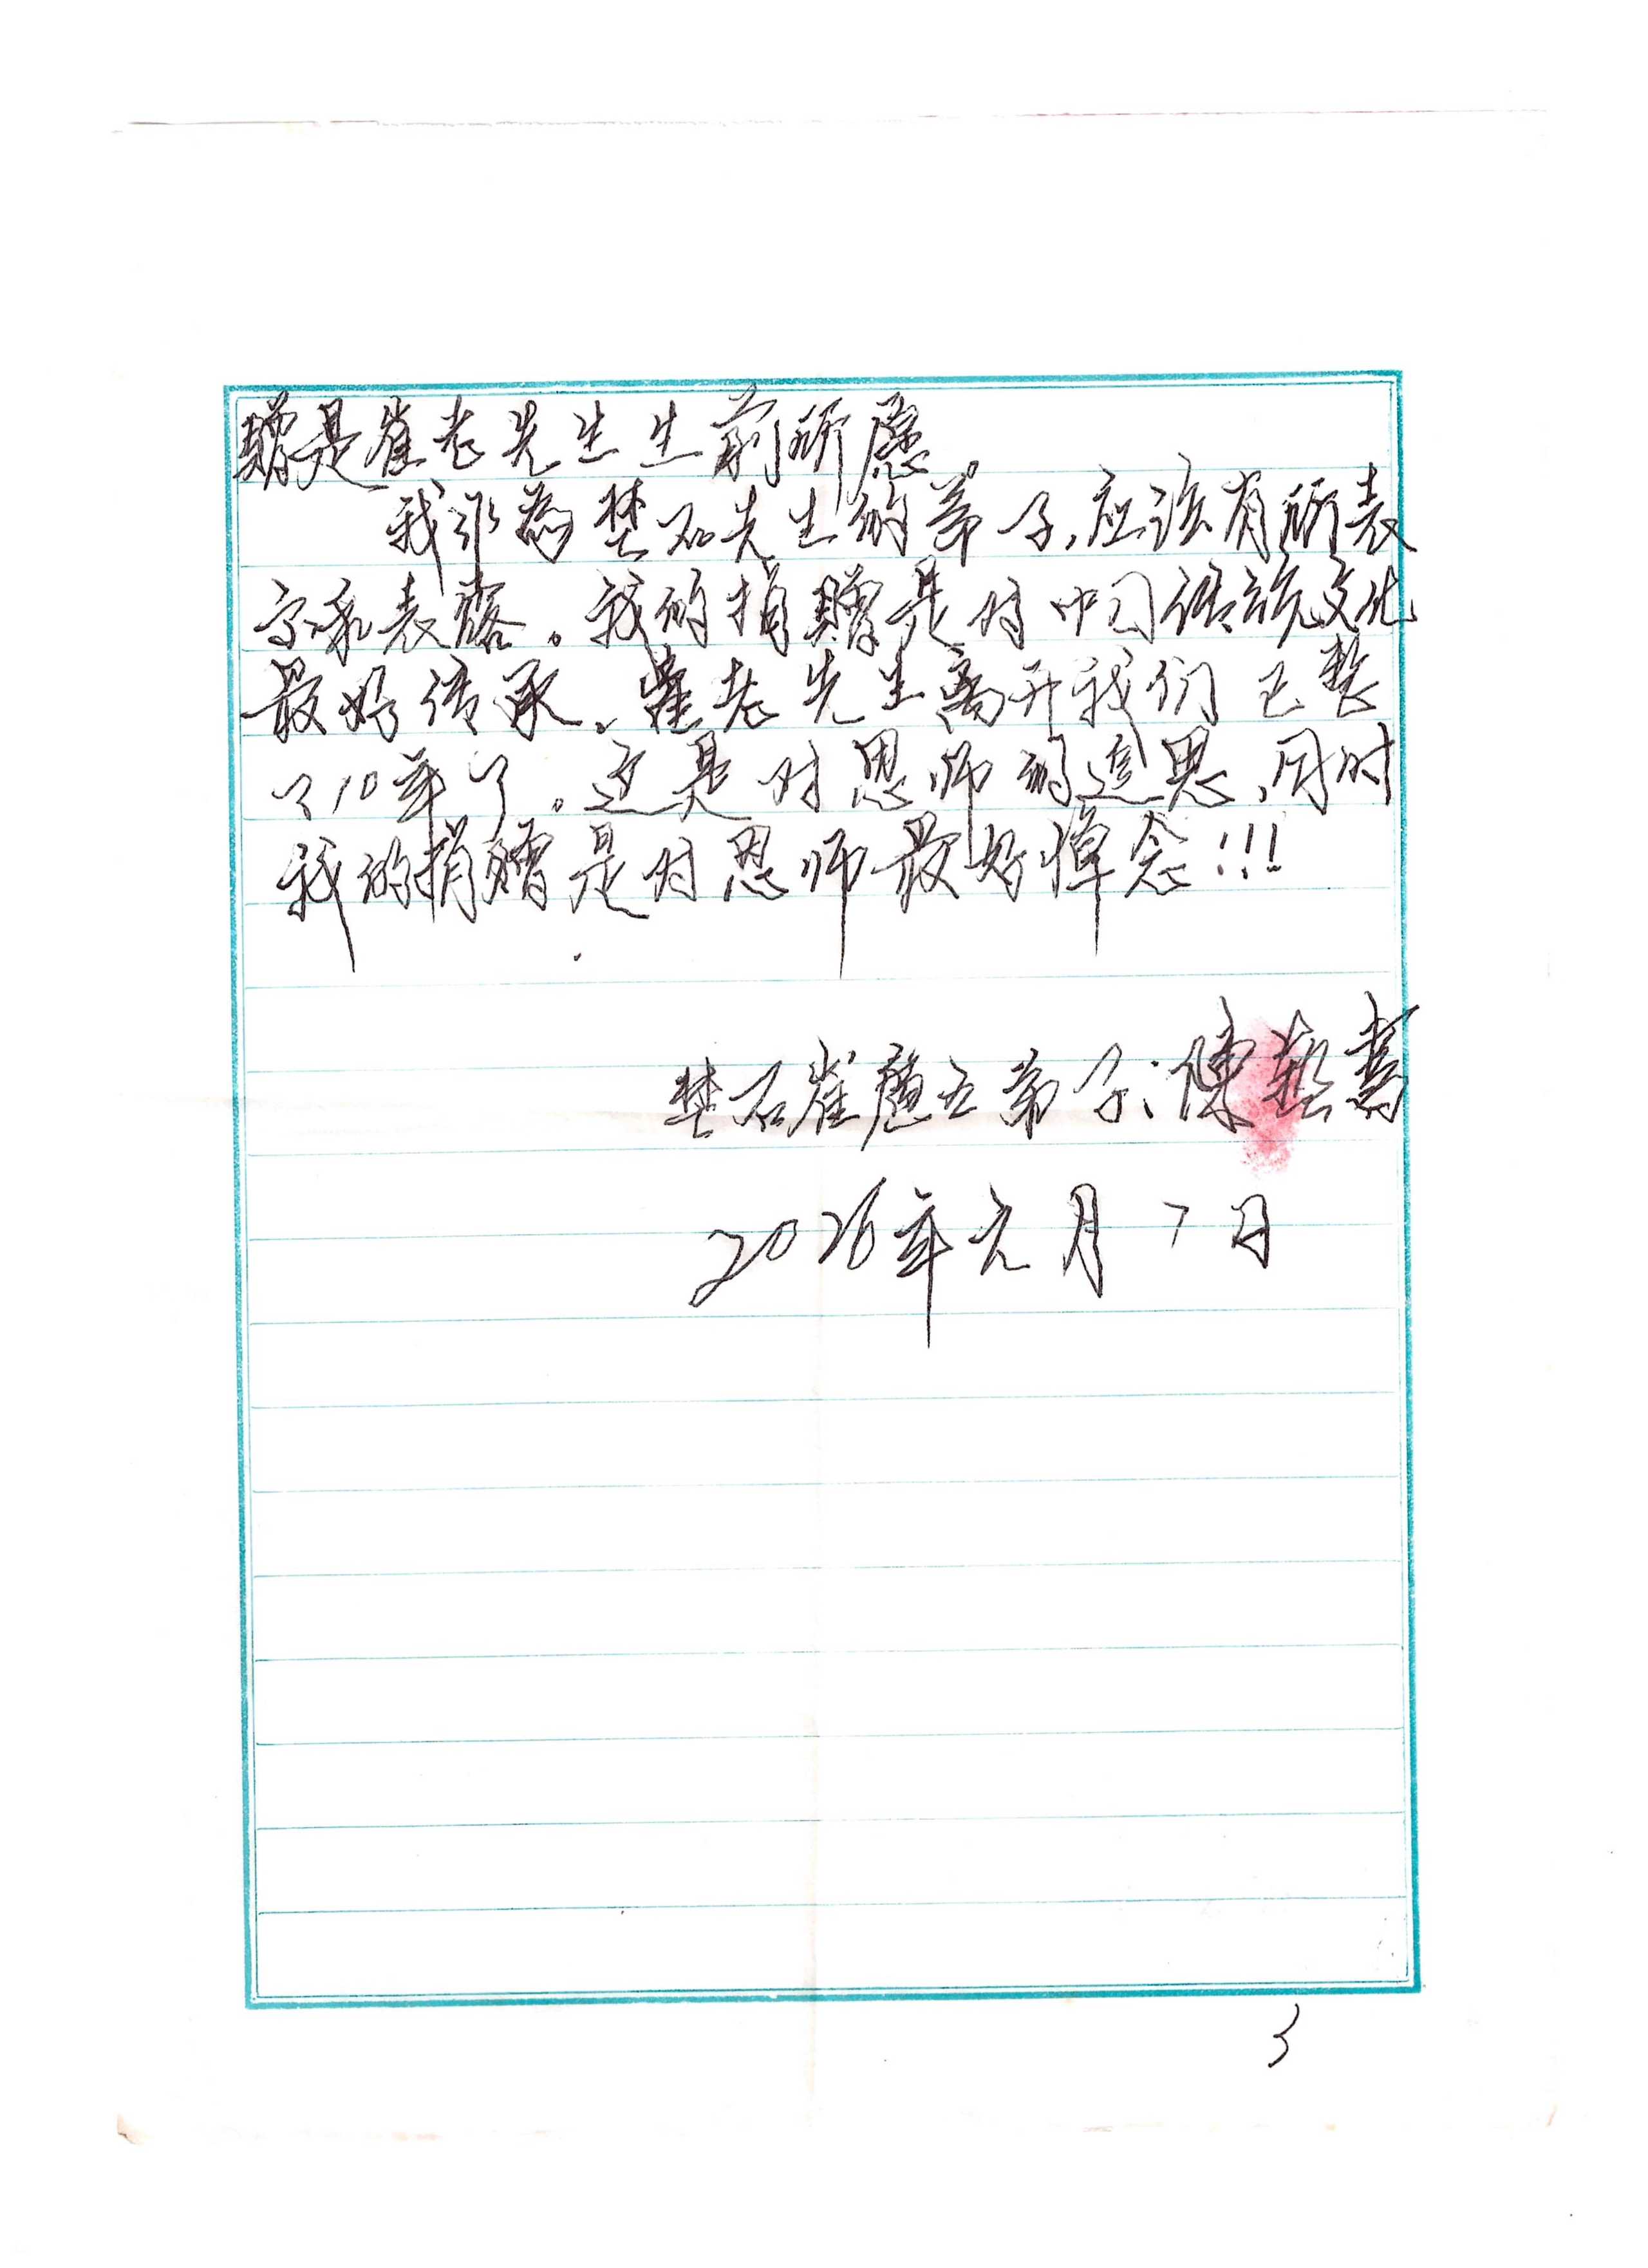 赠是崔老先生生前所愿。
我作为楚石先生的弟子,应该有所表
示和表露。我的捐赠是对中国传统文化
最好传承。崔老先生离开我们已整
了10年了。这是对恩师的追思,同时
我的捐赠是对恩师最好悼念!!!
楚石崔 五弟子:陳藝
2026年元月7日
3